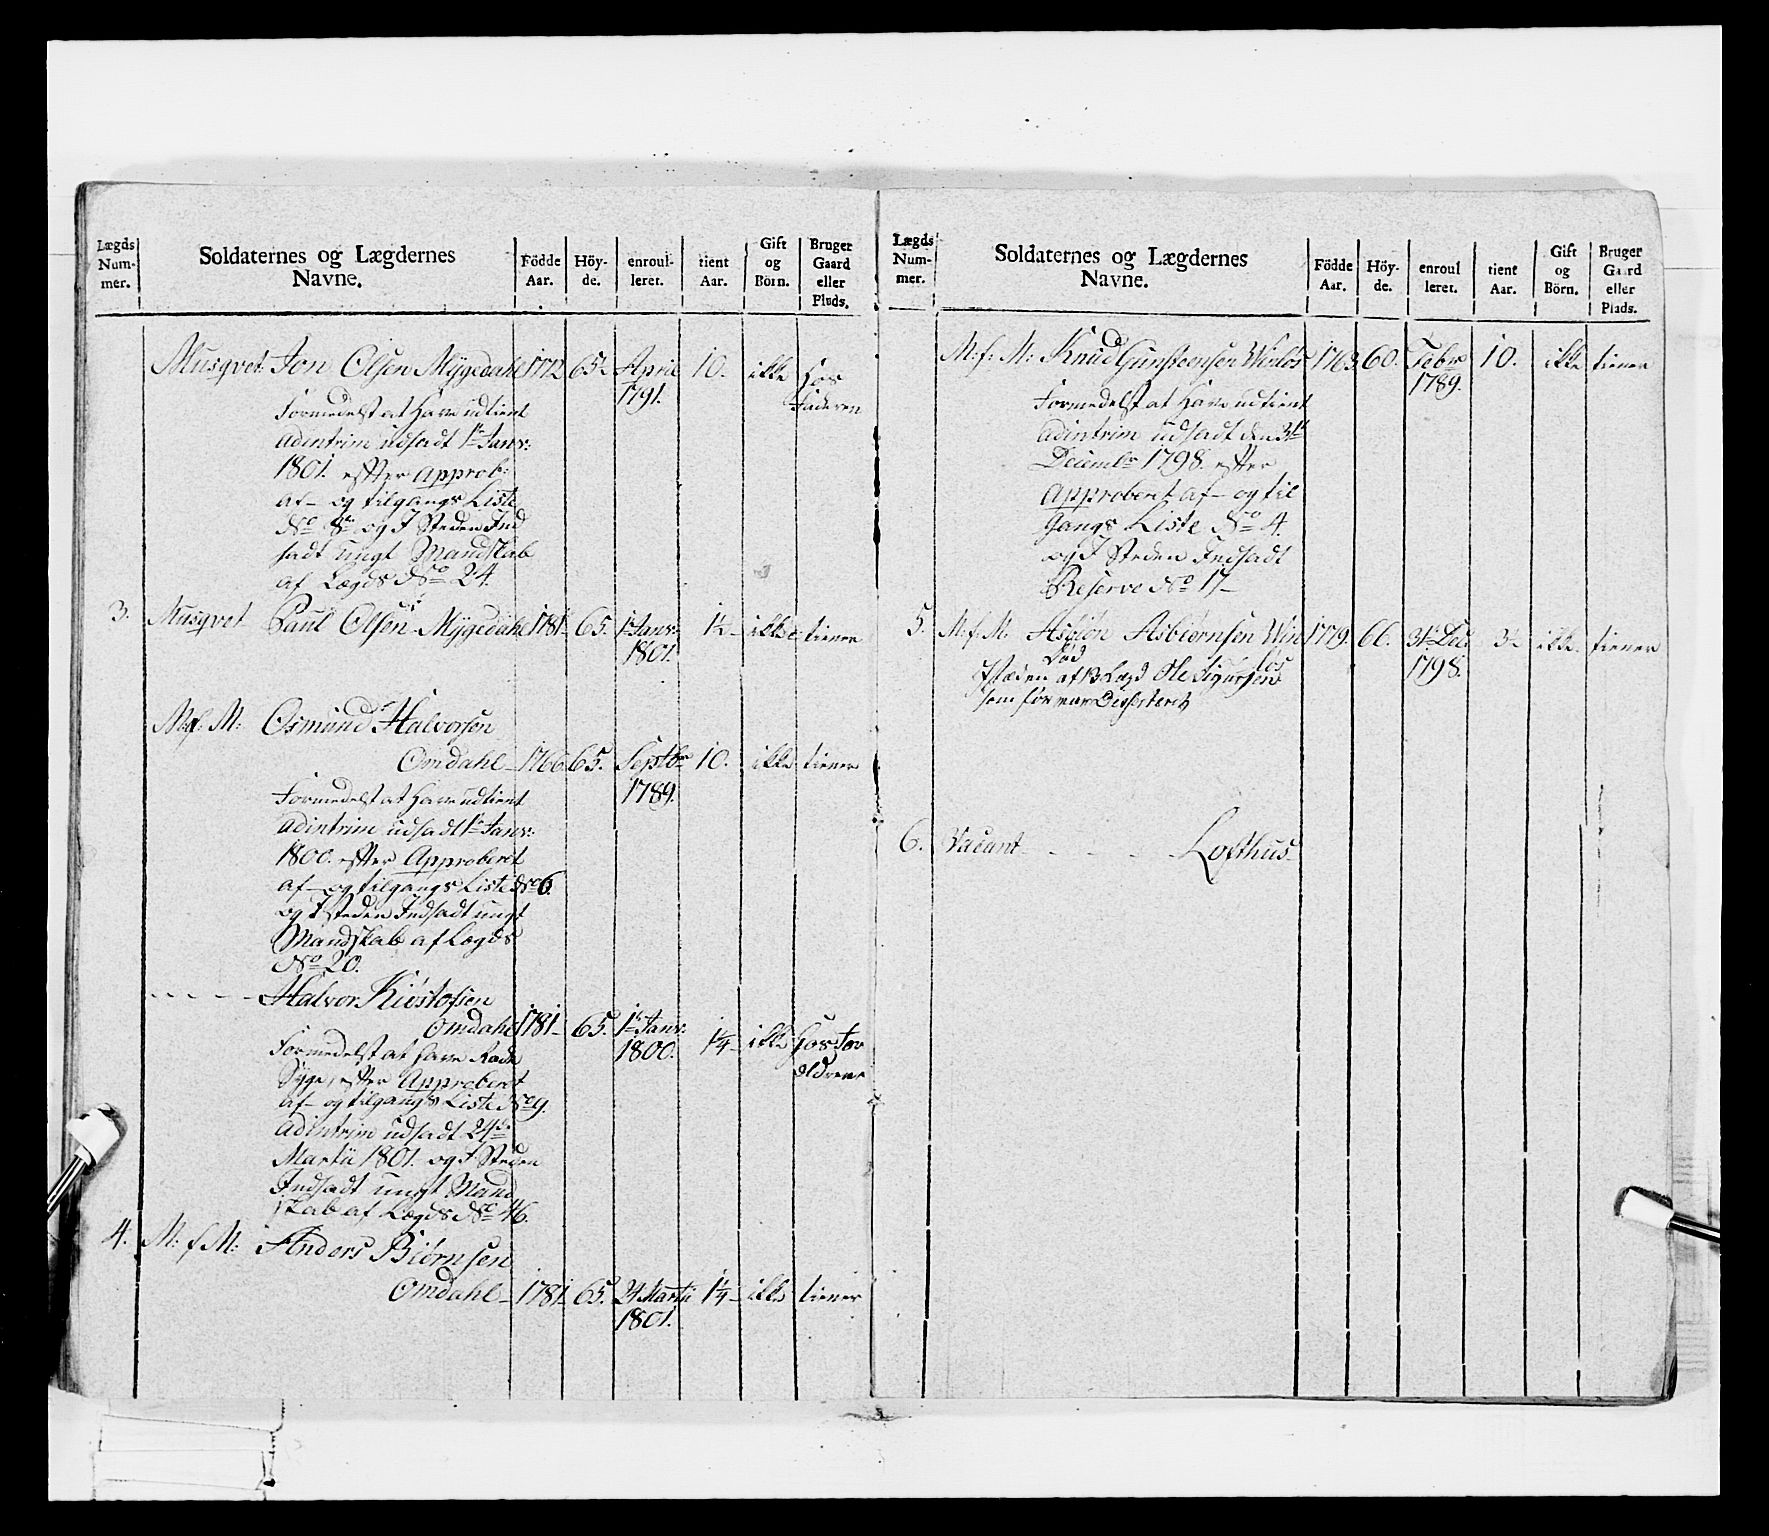 Lægds Num- mer.
Soldaternes og Lægdernes Navne.
Födde Aar.
Höy- de.
enroul- leret.
tient Aar.
Gift og Börn.
Bruger Gaard eller Plads.
Musqvet Jon Olsen Mygedahl 1772 65 April 10. ikke hos
1791. Faderen
Formedelst at have udtient
adintrim udsadt 1te Janv:
1801. efter Approb:
af- og tilgangs Liste
No 8 og I Steden Ind
sadt ungt Mandskab
af Lægds No 24.
3. Musqvet Paul Olsen Mygedahl 1781 65. 1te Janv: 1½ ikke tiener
1801.
M: f: M: Osmund Halvorsen
Omdahl 1766 65. Septbr 10. ikke tiener
1789.
Formedelst at have udtient
adintrim udsadt 1te Janv:
1800. efter Approberet
af- og tilgangs Liste No 6.
og I steden Indsadt ungt
Mandskab af Lægds
No 20.
- - - - Halvor Kiøstofsen
Omdahl 1781 65. 1te Janv: 1¼ ikke hos For
1800. ældrene
Formedelst at have Rade
Syge, efter Approberet
af- og tilgangs Liste No 9.
adintrim udsadt 24de
Martii 1801. og I Steden
Indsadt ungt Mand
skab af Lægds No 46.
4. M: f M: Anders Biørnsen
Omdahl 1781 65. Martii 1¼ ikke tiener
1801.
Lægds Num- mer.
Soldaternes og Lægdernes Navne.
Födde Aar.
Höy- de.
enroul leret.
tient Aar.
Gift og Börn.
Bruger Gaard eller Plads.
M: f: M: Knud Gunsteensen 1763. 60. Febr 10. ikke tiener
1789.
Formedelst at have udtient
adintrim udsadt den 31te
Decembr 1798. efter
Approberet af- og til
gangs Liste No 4.
og I Steden Indsadt
Reserve No 17
5. M: f: M: Asbiørn Asbiørnsen 1779. 66. 31te Dec: 3 ikke tiener
1798.
Død
I stæden af 13 Legd Ole Sigursen
som før var
6. Vacant - - - - Lofthus